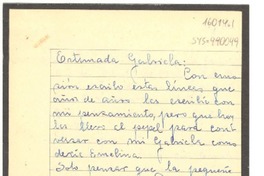 160141
Estimada Gabriela:
Con emo
sión escribo estas líneas que
años de años les escribí con
mi pensamiento, pero que hoy
les llevo el papel para con
versar con mi Gabriela como
decía Emelina.
Solo pensar que la pequeña